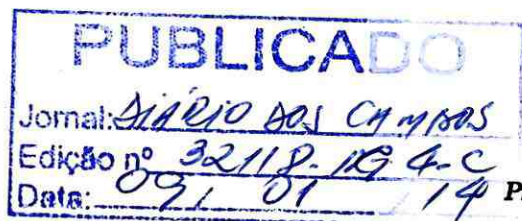 PUBLICADO
Jornal: DIÁRIO DOS CAMPOS
Edição nº 32118-PG 4-C
Data: 09/ 01 / 14
P